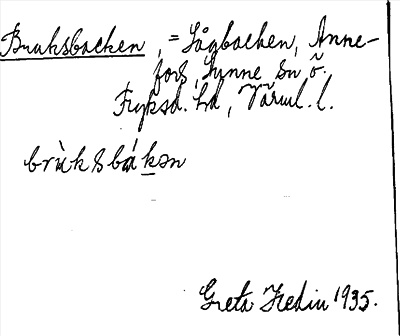 Bruksbacken, = Sågbacken, Anne-
fors, Lysvik sn ö.
Fryksd. hd, Värml. l.
brùksbákən
Greta Hedin 1935.